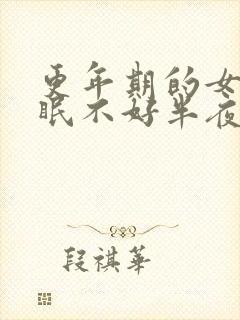 更年期的女
眠不好半夜
段祺華